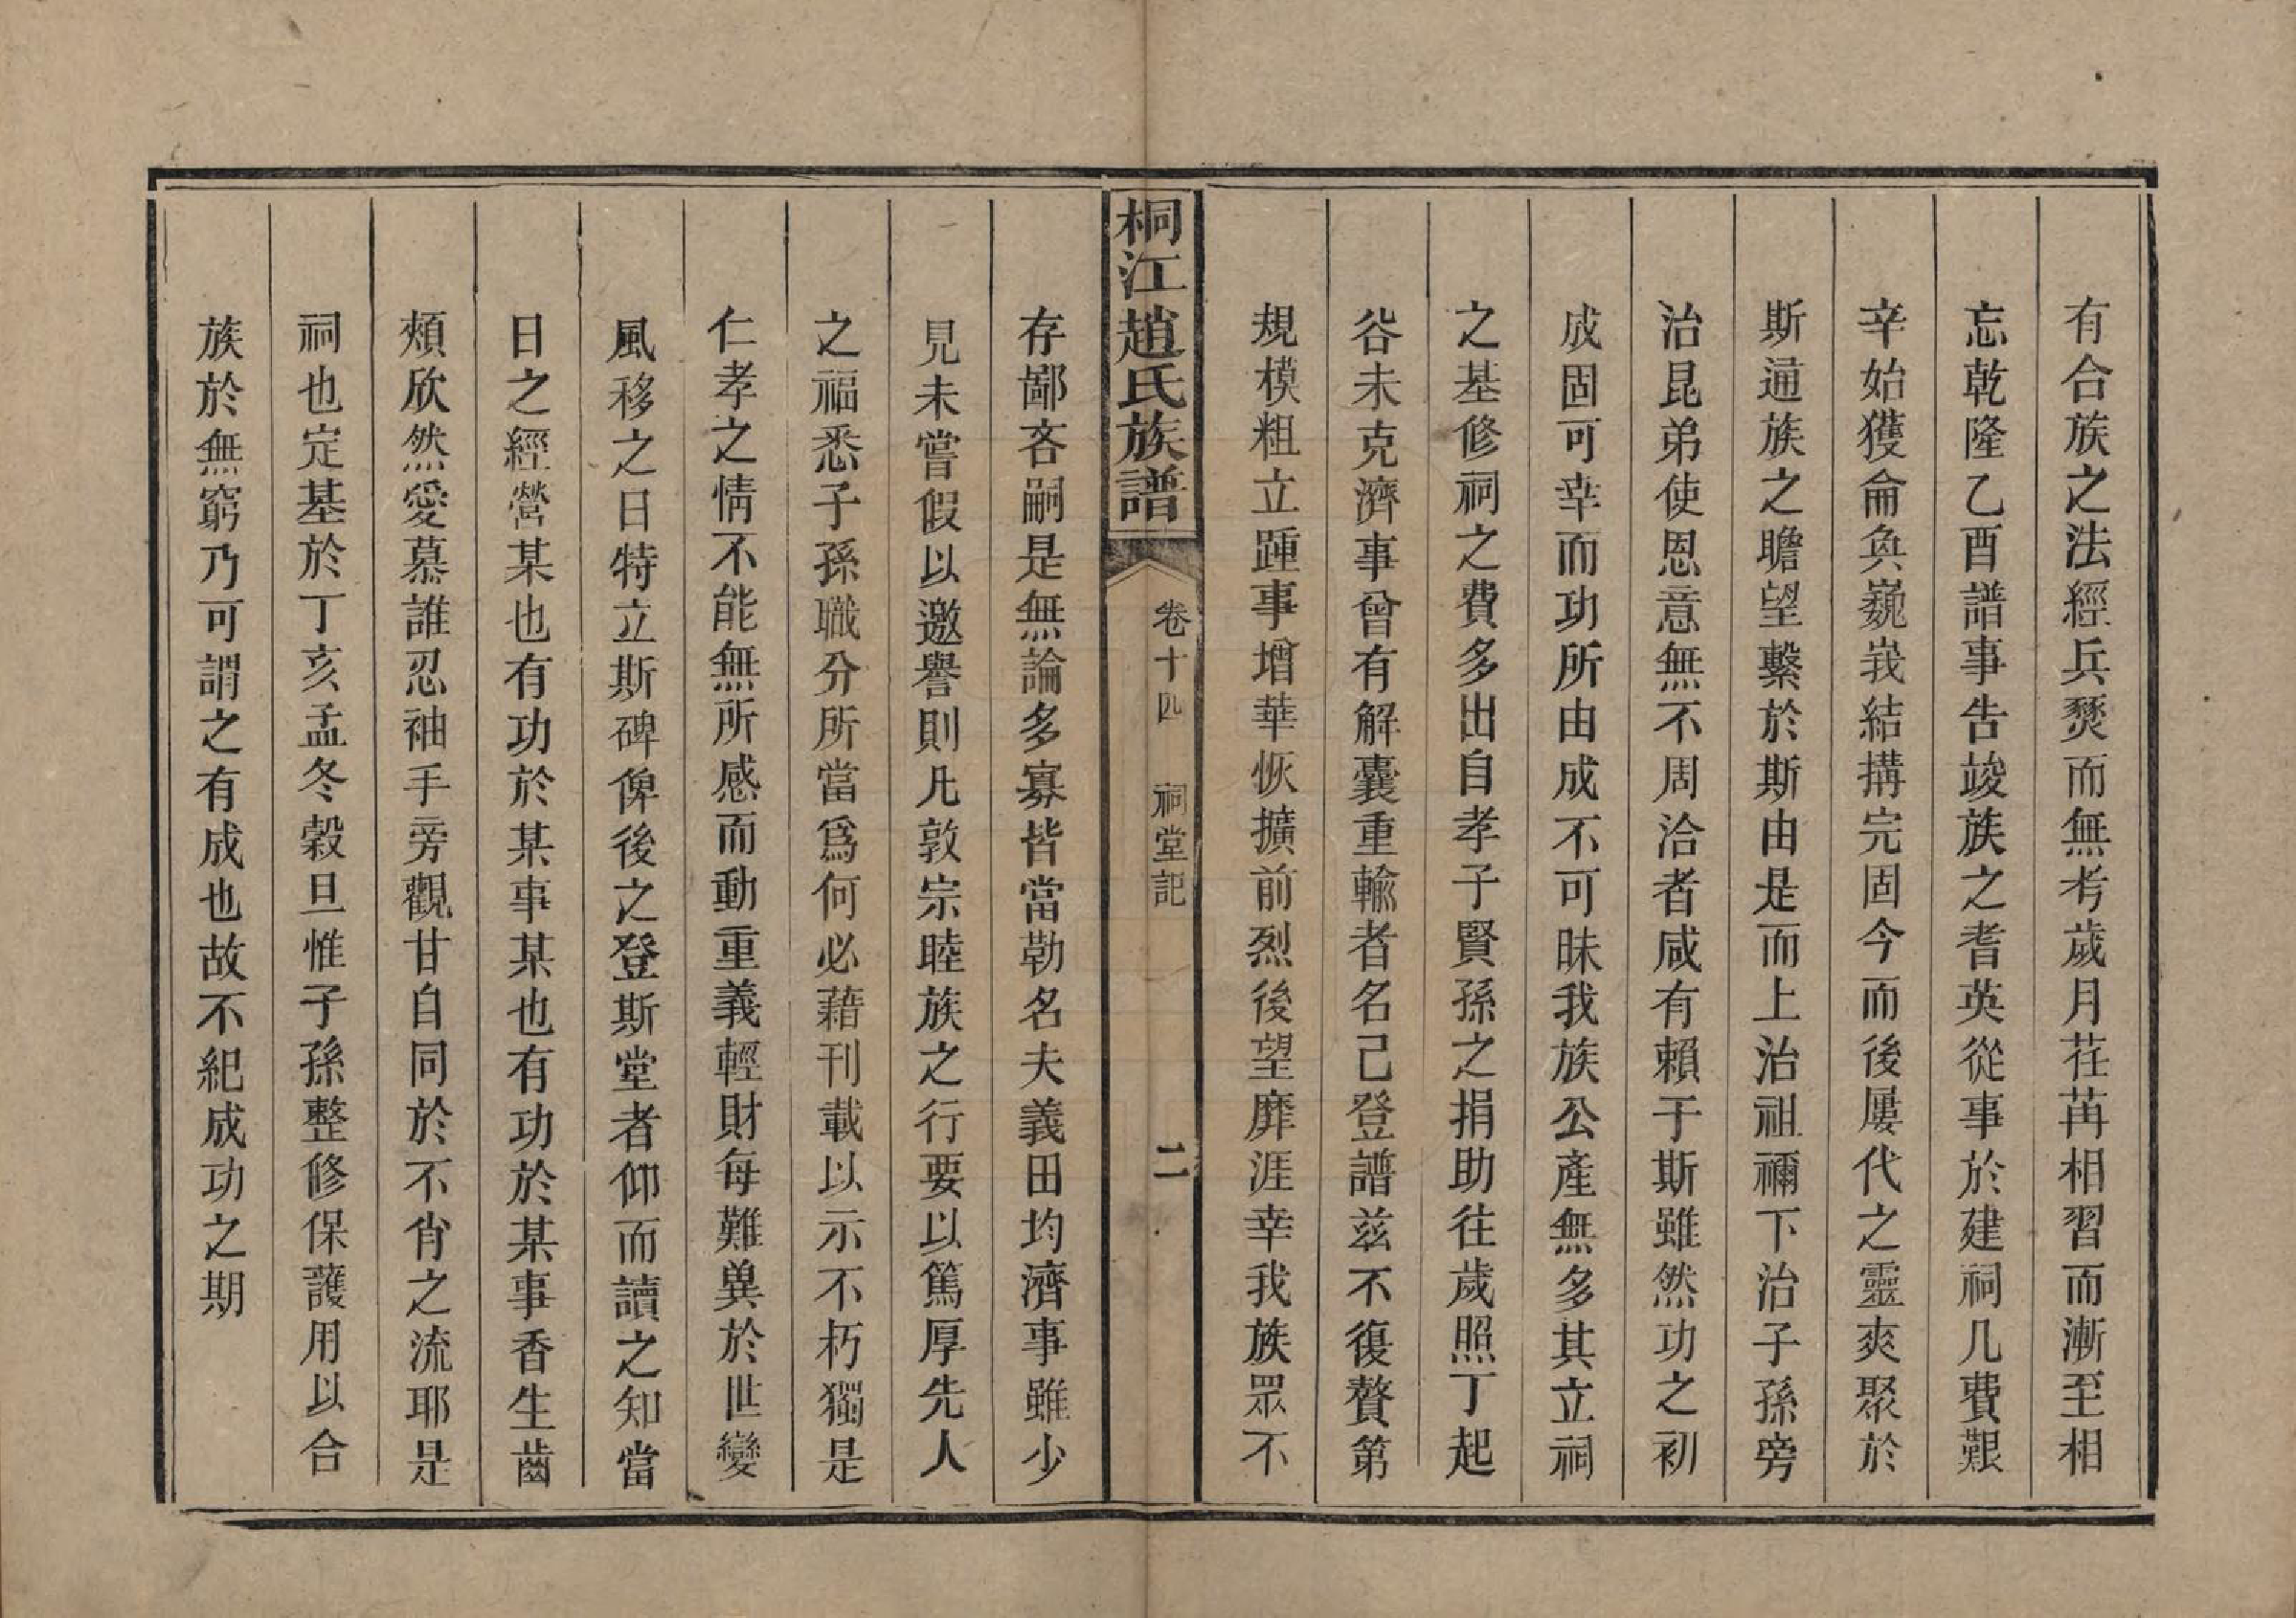 有合族之法經兵燹而無考歲月荏苒相習而漸至相
忘乾隆乙酉譜事告竣族之耆英從事於建祠几費艱
辛始獲侖奐巍峩結搆完固今而後屢代之靈爽聚於
斯通族之瞻望繫於斯由是而上治祖禰下治子孫旁
治昆弟使恩意無不周洽者咸有賴于斯雖然功之初
成固可幸而功所由成不可昧我族公產無多其立祠
之基修祠之費多出自孝子賢孫之捐助往歲照丁起
谷未克濟事曾有解囊重輸者名已登譜茲不復贅第
規模粗立踵事增華恢擴前烈後望靡涯幸我族眾不
桐江趙氏族譜 卷十四 祠堂記 二
存鄙吝嗣是無論多寡皆當勒名夫義田均濟事雖少
見未嘗假以邀譽則凡敦宗睦族之行要以篤厚先人
之福悉子孫職分所當爲何必藉刊載以示不朽獨是
仁孝之情不能無所感而動重義輕財每難異於世變
風移之日特立斯碑俾後之登斯堂者仰而讀之知當
日之經營某也有功於某事某也有功於某事香生齒
頰欣然愛慕誰忍袖手旁觀甘自同於不肖之流耶是
祠也定基於丁亥孟冬穀旦惟子孫整修保護用以合
族於無窮乃可謂之有成也故不紀成功之期